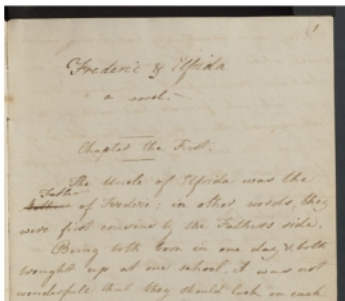 (1
Frederic & Elfrida
a novel.
Chapter the First.
The Uncle of Elfrida was the
Father
of Frederic; in other words, they
were first cousins by the Father's side.
Being both born in one day & both
brought up at one school, it was not
wonderfull that they should look on each